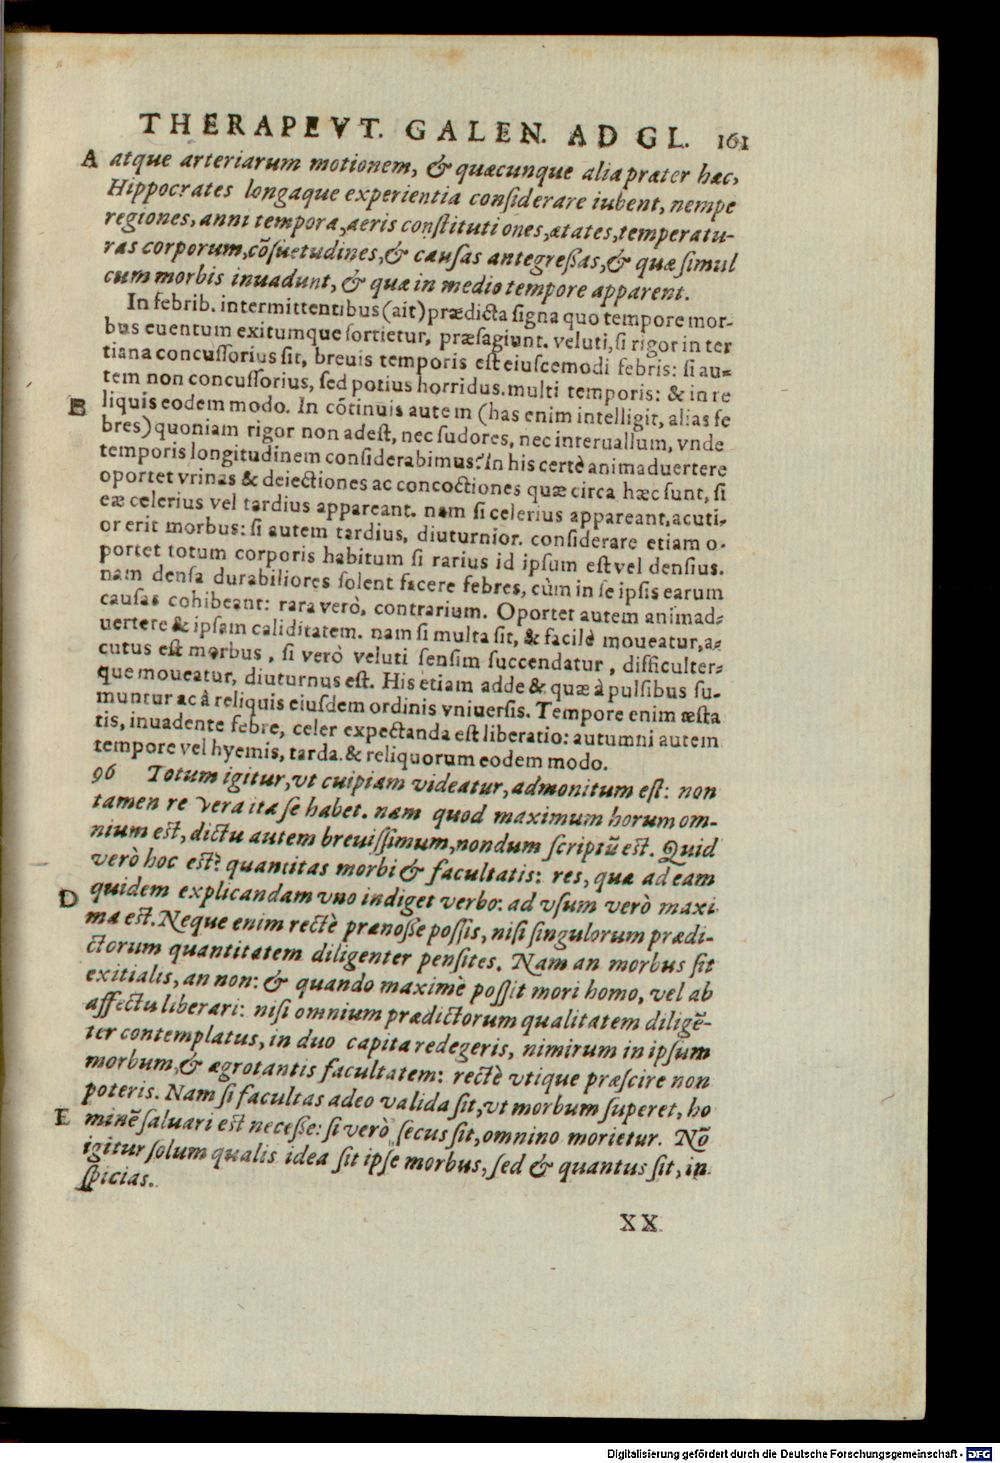 THERAPEVT. GALEN. AD GL. 161
A atque arteriarum motionem, & quæcunque alia præter hæc,
Hippocrates longaque experientia conſiderare iubent, nempe
regiones, anni tempora, aeris conſtitutiones, ætates, temperatu-
ras corporum, cõſuetudines, & cauſas antegreſſas, & quæ ſimul
cum morbis inuadunt, & quæ in medio tempore apparent.
In febrib. intermittentibus (ait) prædicta ſigna quo tempore mor-
bus euentum exitumque ſortietur, præſagiunt. veluti, ſi rigor in ter
tiana concuſſorius ſit, breuis temporis eſt eiuſcemodi febris: ſi au-
tem non concuſſorius, ſed potius horridus. multi temporis: & in re
B liquis eodem modo. In cõtinuis autem (has enim intelligit, alias fe
bres) quoniam rigor non adeſt, nec ſudores, nec interuallum, vnde
temporis longitudinem conſiderabimus? In his certè animaduertere
oportet vrinas & deiectiones ac concoctiones quæ circa hæc ſunt, ſi
eæ celerius vel tardius appareant. nam ſi celerius appareant, acuti-
or erit morbus: ſi autem tardius, diuturnior. conſiderare etiam o-
portet totum corporis habitum ſi rarius id ipſum eſt vel denſius.
nam denſa durabiliores ſolent facere febres, cùm in ſe ipſis earum
cauſas cohibeant: rara verò, contrarium. Oportet autem animad-
uertere & ipſam caliditatem. nam ſi multa ſit, & facilè moueatur, a-
cutus eſt morbus, ſi verò veluti ſenſim ſuccendatur, difficulter-
que moueatur, diuturnus eſt. His etiam adde & quæ à pulſibus ſu-
muntur ac à reliquis eiuſdem ordinis vniuerſis. Tempore enim æſta
tis, inuadente febre, celer expectanda eſt liberatio: autumni autem
tempore vel hyemis, tarda. & reliquorum eodem modo.
96 Totum igitur, vt cuipiam videatur, admonitum eſt: non
tamen re vera ita ſe habet. nam quod maximum horum om-
nium eſt, dictu autem breuiſſimum, nondum ſcriptũ eſt. Quid
verò hoc eſt? quantitas morbi & facultatis: res, quæ ad eam
D quidem explicandam vno indiget verbo: ad vſum verò maxi
ma eſt. Neque enim rectè prænoſſe poſſis, niſi ſingulorum prædi-
ctorum quantitatem diligenter penſites. Nam an morbus ſit
exitialis, an non: & quando maximè poſſit mori homo, vel ab
affectu liberari: niſi omnium prædictorum qualitatem diligẽ-
ter contemplatus, in duo capita redegeris, nimirum in ipſum
morbum, & ægrotantis facultatem: rectè vtique præſcire non
poteris. Nam ſi facultas adeo valida ſit, vt morbum ſuperet, ho
E minẽ ſaluari eſt neceſſe: ſi verò ſecus ſit, omnino morietur. Nõ
igitur ſolum qualis idea ſit ipſe morbus, ſed & quantus ſit, in
ſpicias.
XX
Digitalisierung gefördert durch die Deutsche Forschungsgemeinschaft - DFG